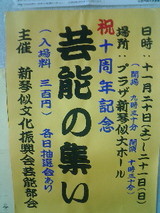 日時：十一月二十日（土）～二十一日（日）
（開場 九時三十分 開演 十時三十分）
場所：プラザ新琴似大ホール
祝十周年記念
芸能の集い
（入場料 三百円）各日抽選会あり
主催 新琴似文化振興会芸能部会